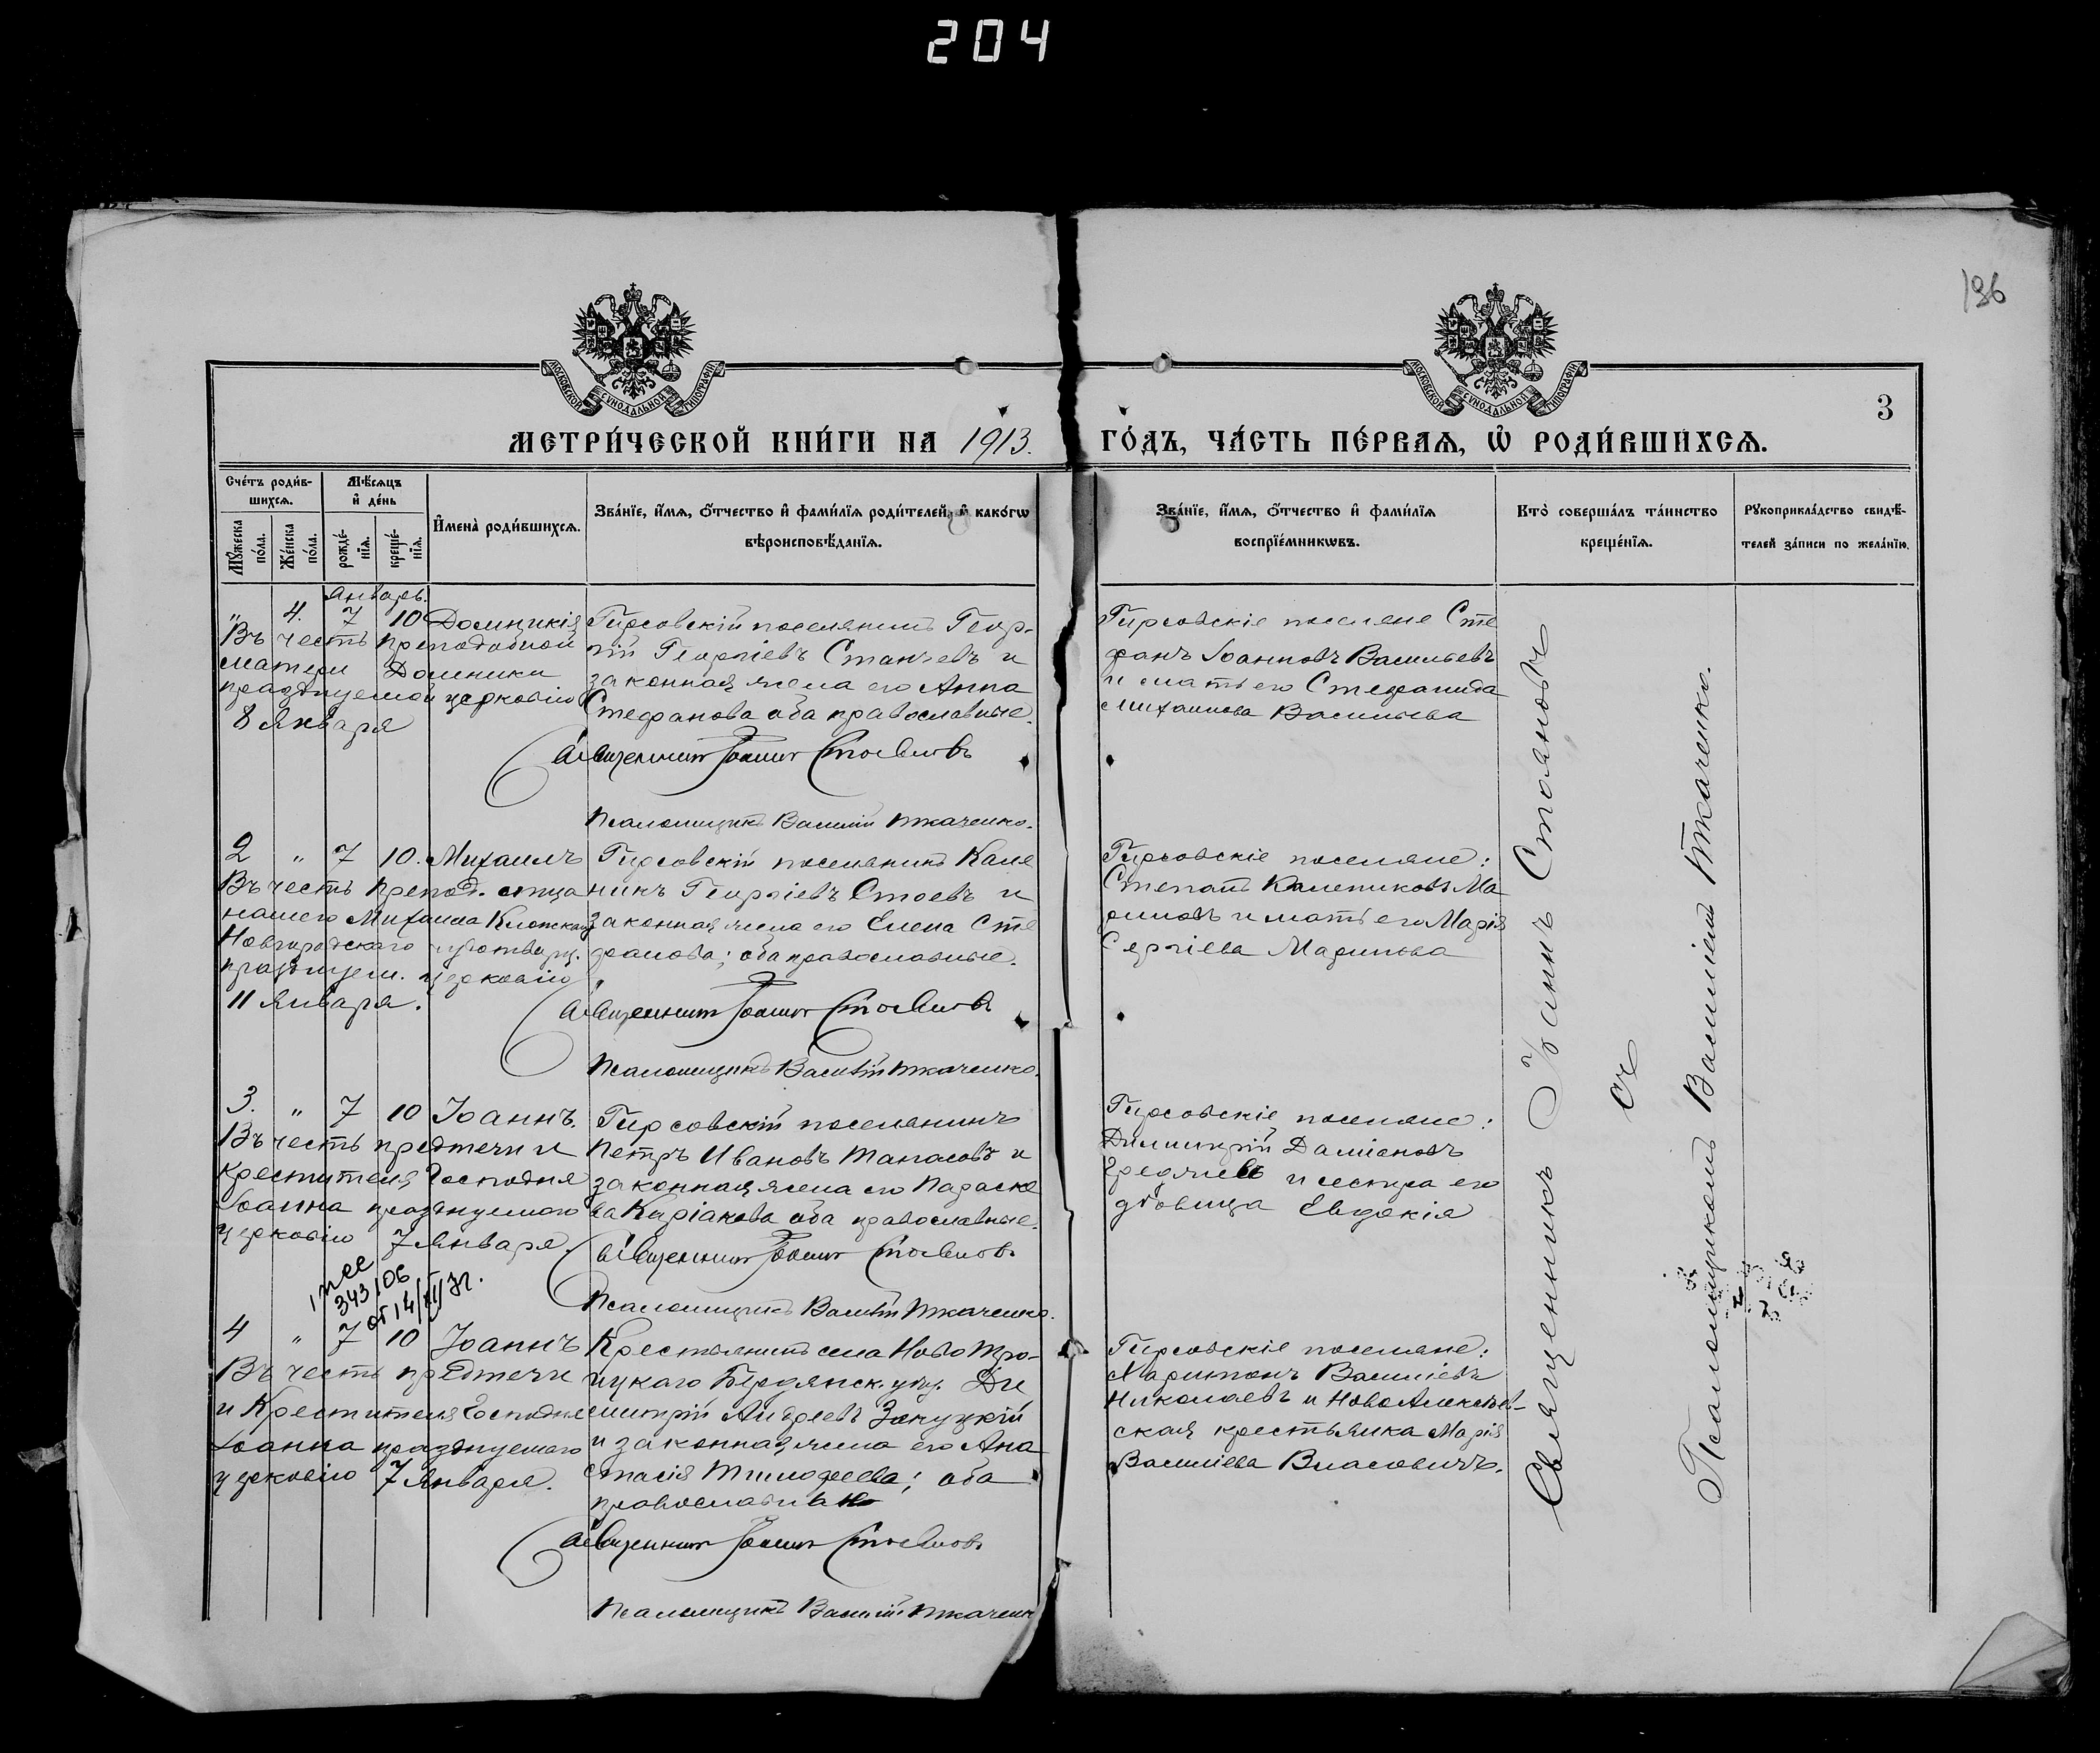 204
196
3
МОСКОВСКОЙ СУНОДАЛЬНОЙ ТИПОГРАФІИ
МОСКОВСКОЙ СУНОДАЛЬНОЙ ТИПОГРАФІИ
МЕТРИ́ЧЕСКОЙ КНИ́ГИ НА 1913. ГО́ДЪ, ЧА́СТЬ ПЕ́РВАѦ, Ѡ҆ РОДИ́ВШИХСѦ.
Сче́тъ роди́в-
шихсѧ.
Мꙋ́жеска по́ла.
Же́нска по́ла.
Мѣ́сѧцъ
и҆ де́нь
рожде́-
нїѧ.
креще́-
нїѧ.
И҆мена̀ роди́вшихсѧ.
Зва́нїе, и҆́мѧ, ѻ҆́тчество и҆ фами́лїѧ роди́телей, и҆ како́гѡ
вѣроисповѣ́данїѧ.
Зва́нїе, и҆́мѧ, ѻ҆́тчество и҆ фами́лїѧ
воспрїе́мникѡвъ.
Кто̀ соверша́лъ та́инство
креще́нїѧ.
Рꙋкоприкла́дство свидѣ́-
телей за́писи по жела́нїю.
Январь.
„ 4. 7 10 Домникія
Въ честь преподобной
матери Домники
празднуемой церковію
8 Января
Гирсовскій поселянинъ Геор-
гій Георгіевъ Станчевъ и
законная жена его Анна
Стефанова оба православные.
Священникъ Іоаннъ Стояновъ
Псаломщикъ Василій Ткаченко.
Гирсовскіе поселяне Сте
фанъ Іоанновъ Васильевъ
и мать его Стефанида
Михаилова Васильева
2 „ 7 10. Михаилъ
Въ честь препод. отца
нашего Михаила Клопскаго
Новгородскаго чудотворц.
празднуем. церковію
11 Января.
Гирсовскій поселянинъ Кале
никъ Георгіевъ Стоевъ и
законная жена его Елена Сте
фанова; оба православные.
Священникъ Іоаннъ Стояновъ
Псаломщикъ Василій Ткаченко.
Гирсовскіе поселяне:
Степанъ Калениковъ Ма
риновъ и мать его Марія
Сергіева Маринова
3. „ 7 10 Іоаннъ.
Въ честь предтечи и
крестителя Господня
Іоанна празднуемого
церковію 7 Января.
Гирсовскій поселянинъ
Петръ Ивановъ Танасовъ и
законная жена его Параске
ва Киріакова оба православные.
Священникъ Іоаннъ Стояновъ
Псаломщикъ Василій Ткаченко.
Гирсовскіе поселяне:
Димитрій Даміановъ
и сестра его
дѣвица Евдокія
343/06
4 „ 7 10 Іоаннъ
Въ честь предтечи
и Крестителя Господня
Іоанна празднуемого
церковію 7 Января.
Крестьянинъ села Ново Тро-
ицкаго Бердянск. уѣзд. Ди
митрій Андреевъ Закуцкій
и законная жена его Ана
стасія Тимофеева; оба
православные
Священникъ Іоаннъ Стояновъ
Псаломщикъ Василій Ткаченк
Гирсовскіе поселяне:
Харитонъ Василіевъ
Николаевъ и НовоАлексѣев-
ская крестьянка Марія
Василіева Власовичъ.
Священникъ Іоаннъ Стояновъ
съ
Псаломщикомъ Василіемъ Ткаченко.